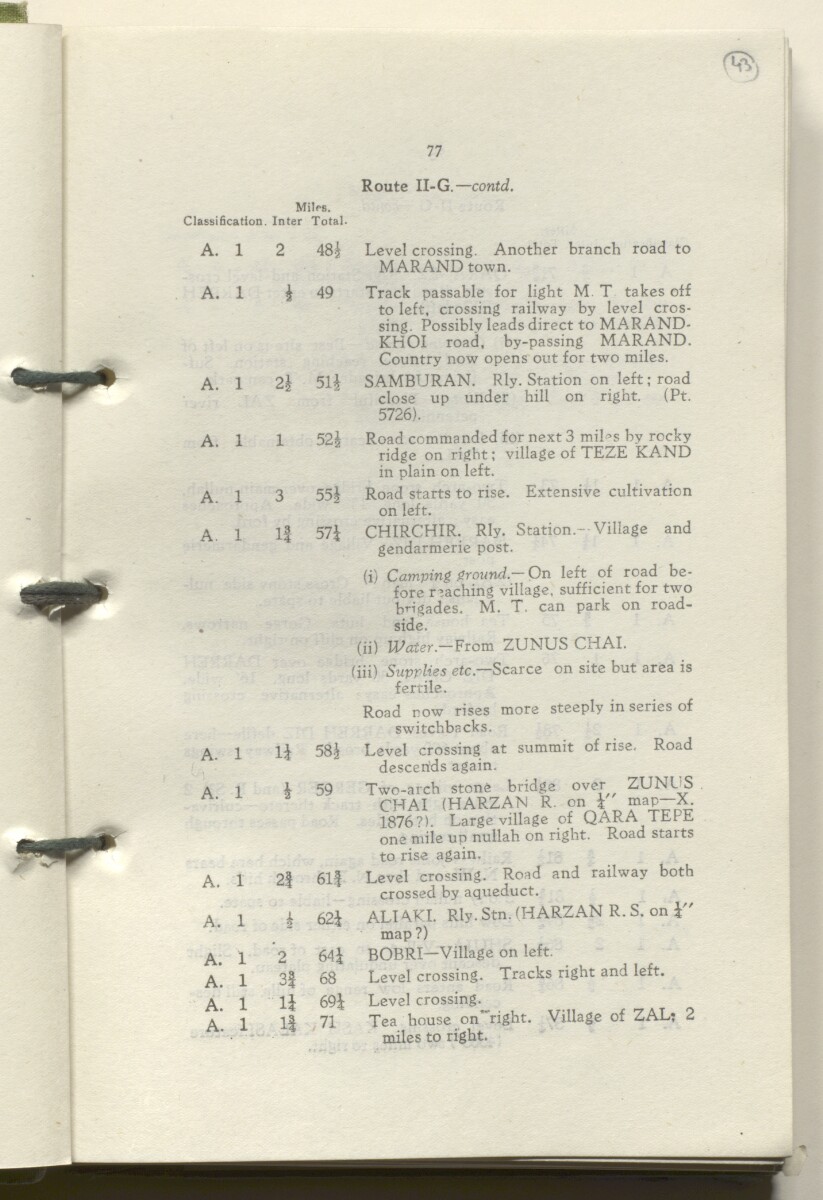 43
77
Route II-G.—contd.
Miles.
Classification. Inter Total.
A. 1 2 48½ Level crossing. Another branch road to
MARAND town.
A. 1 ½ 49 Track passable for light M. T takes off
to left, crossing railway by level cros-
sing. Possibly leads direct to MARAND-
KHOI road, by-passing MARAND.
Country now opens out for two miles.
A. 1 2½ 51½ SAMBURAN. Rly. Station on left; road
close up under hill on right. (Pt.
5726).
A. 1 1 52½ Road commanded for next 3 miles by rocky
ridge on right; village of TEZE KAND
in plain on left.
A. 1 3 55½ Road starts to rise. Extensive cultivation
on left.
A. 1 1¾ 57¼ CHIRCHIR. Rly. Station.—Village and
gendarmerie post.
(i) Camping ground.—On left of road be-
fore reaching village, sufficient for two
brigades. M. T. can park on road-
side.
(ii) Water.—From ZUNUS CHAI.
(iii) Supplies etc.—Scarce on site but area is
fertile.
Road now rises more steeply in series of
switchbacks.
A. 1 1¼ 58½ Level crossing at summit of rise. Road
descends again.
A. 1 ½ 59 Two-arch stone bridge over ZUNUS
CHAI (HARZAN R. on ¼″ map—X.
1876?). Large village of QARA TEPE
one mile up nullah on right. Road starts
to rise again.
A. 1 2¾ 61¾ Level crossing. Road and railway both
crossed by aqueduct.
A. 1 ½ 62¼ ALIAKI. Rly. Stn. (HARZAN R. S. on ¼″
map?)
A. 1 2 64¼ BOBRI—Village on left.
A. 1 3¾ 68 Level crossing. Tracks right and left.
A. 1 1¼ 69¼ Level crossing.
A. 1 1¾ 71 Tea house on right. Village of ZAL; 2
miles to right.